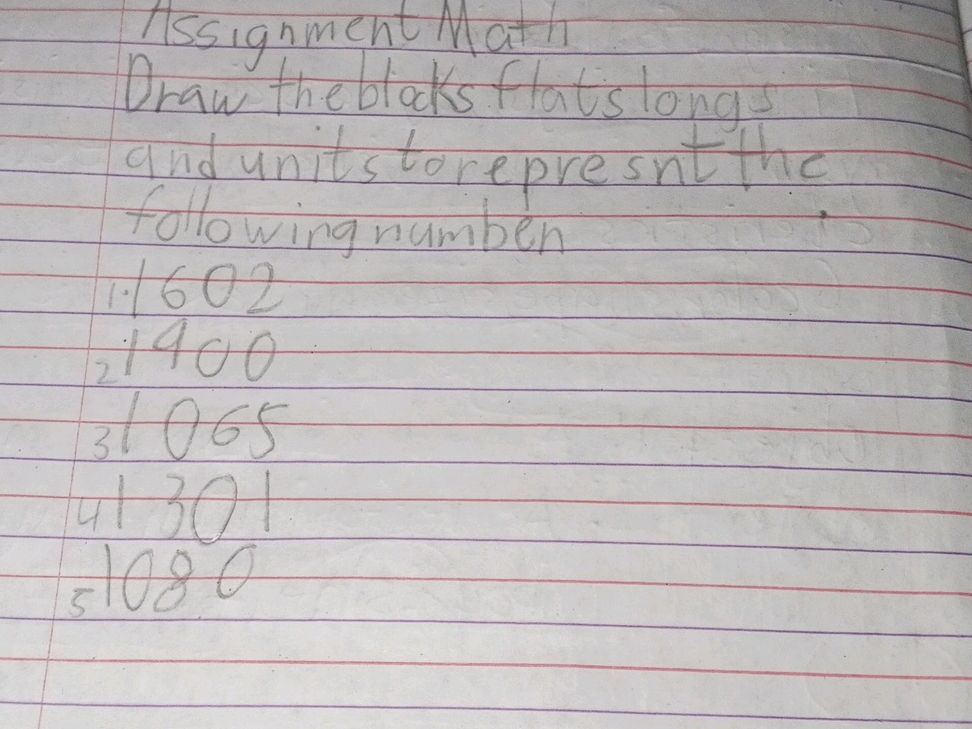 Assignment Math
Draw the blocks flats longs
and units to represnt the
following number
1. 1602
2 1900
3 1065
4 1301
5 1080